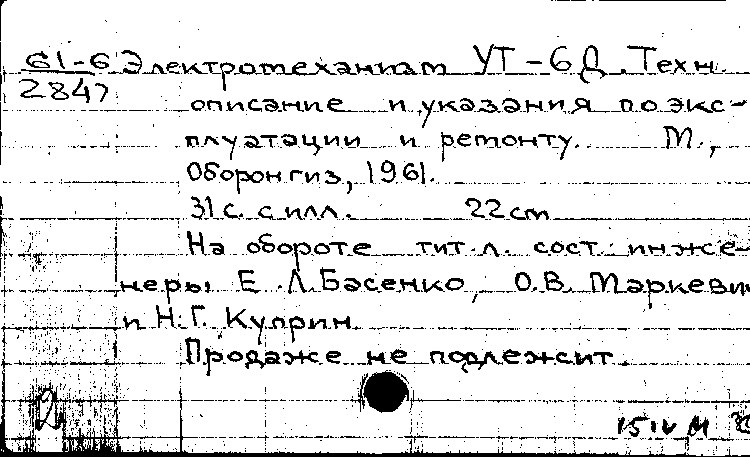 61-6 Электромеханизм УТ-6Д. Техн.
2847
описание и указания по экс-
плуатации и ремонту. М.,
Оборонгиз, 1961.
31 с. с илл. 22 см
На обороте тит. л. сост. инже-
неры Е. Л. Басенко, О.В. Маркеви
и Н.Г. Куприн.
Продаже не подлежит.
2